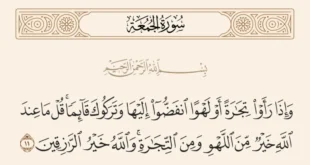 سُورَةُ الجُمُعَةِ
بِسْمِ اللَّهِ الرَّحْمَٰنِ الرَّحِيمِ
وَإِذَا رَأَوْا۟ تِجَٰرَةً أَوْ لَهْوًا ٱنفَضُّوٓا۟ إِلَيْهَا وَتَرَكُوكَ قَآئِمًا ۚ قُلْ مَا عِندَ
ٱللَّهِ خَيْرٌ مِّنَ ٱللَّهْوِ وَمِنَ ٱلتِّجَٰرَةِ ۚ وَٱللَّهُ خَيْرُ ٱلرَّٰزِقِينَ ١١